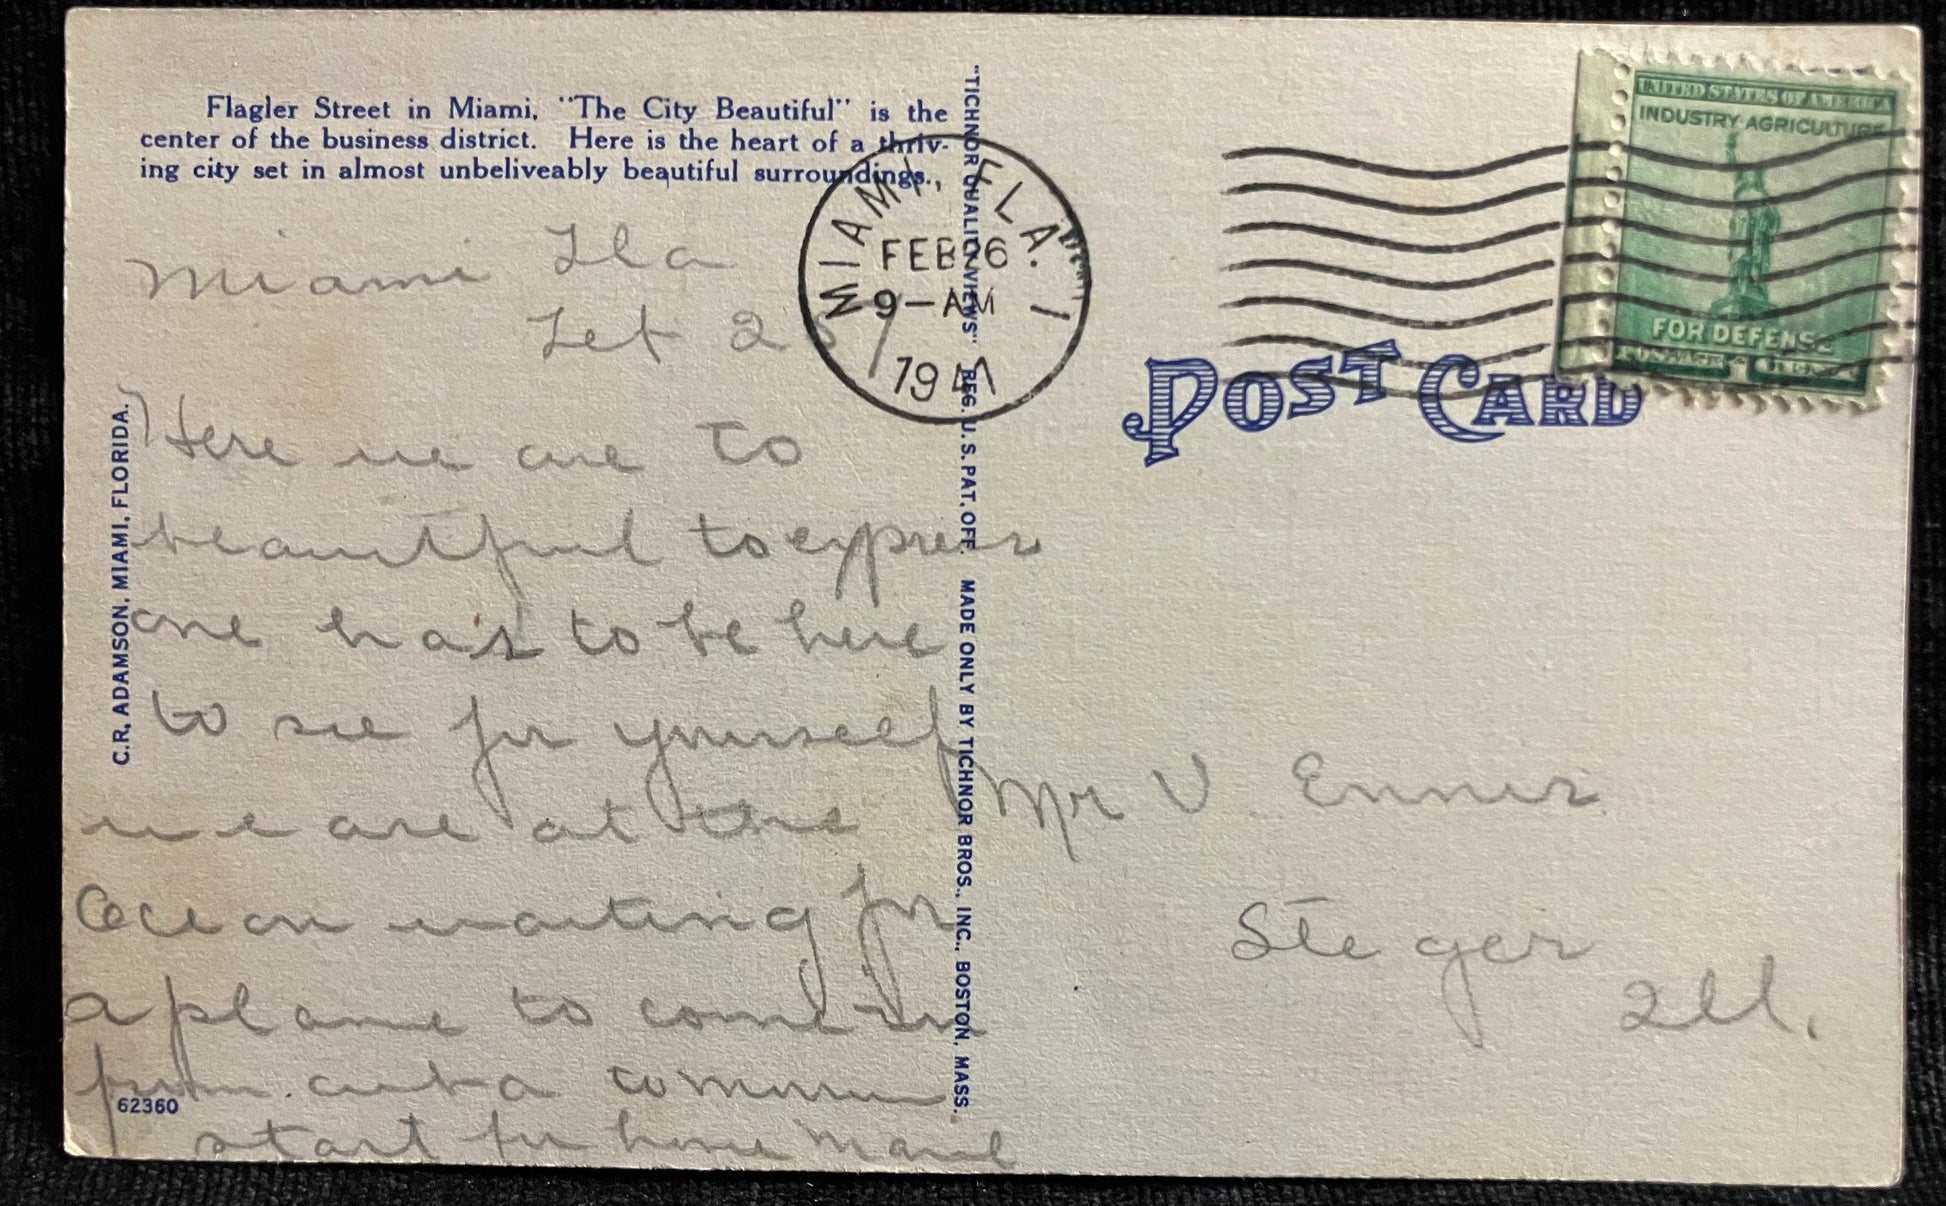 Flagler Street in Miami, "The City Beautiful" is the
center of the business district. Here is the heart of a thriv-
ing city set in almost unbelieveably beautiful surroundings.
Miami Fla
Feb 25
Here we are to
beautiful to express
one has to be here
to see for yourself
we are at the
Ocean waiting for
a plane to come in
from cuba tomorrow
start for home
C.R. ADAMSON, MIAMI, FLORIDA.
62360
"TICHNOR QUALITY VIEWS" REG. U.S. PAT. OFF. MADE ONLY BY TICHNOR BROS., INC., BOSTON, MASS.
MIAMI, FLA. 1
FEB 26
9-AM
1941
UNITED STATES OF AMERICA
INDUSTRY AGRICULTURE
FOR DEFENSE
POST CARD
Mr V. Ennis
Steger
Ill.